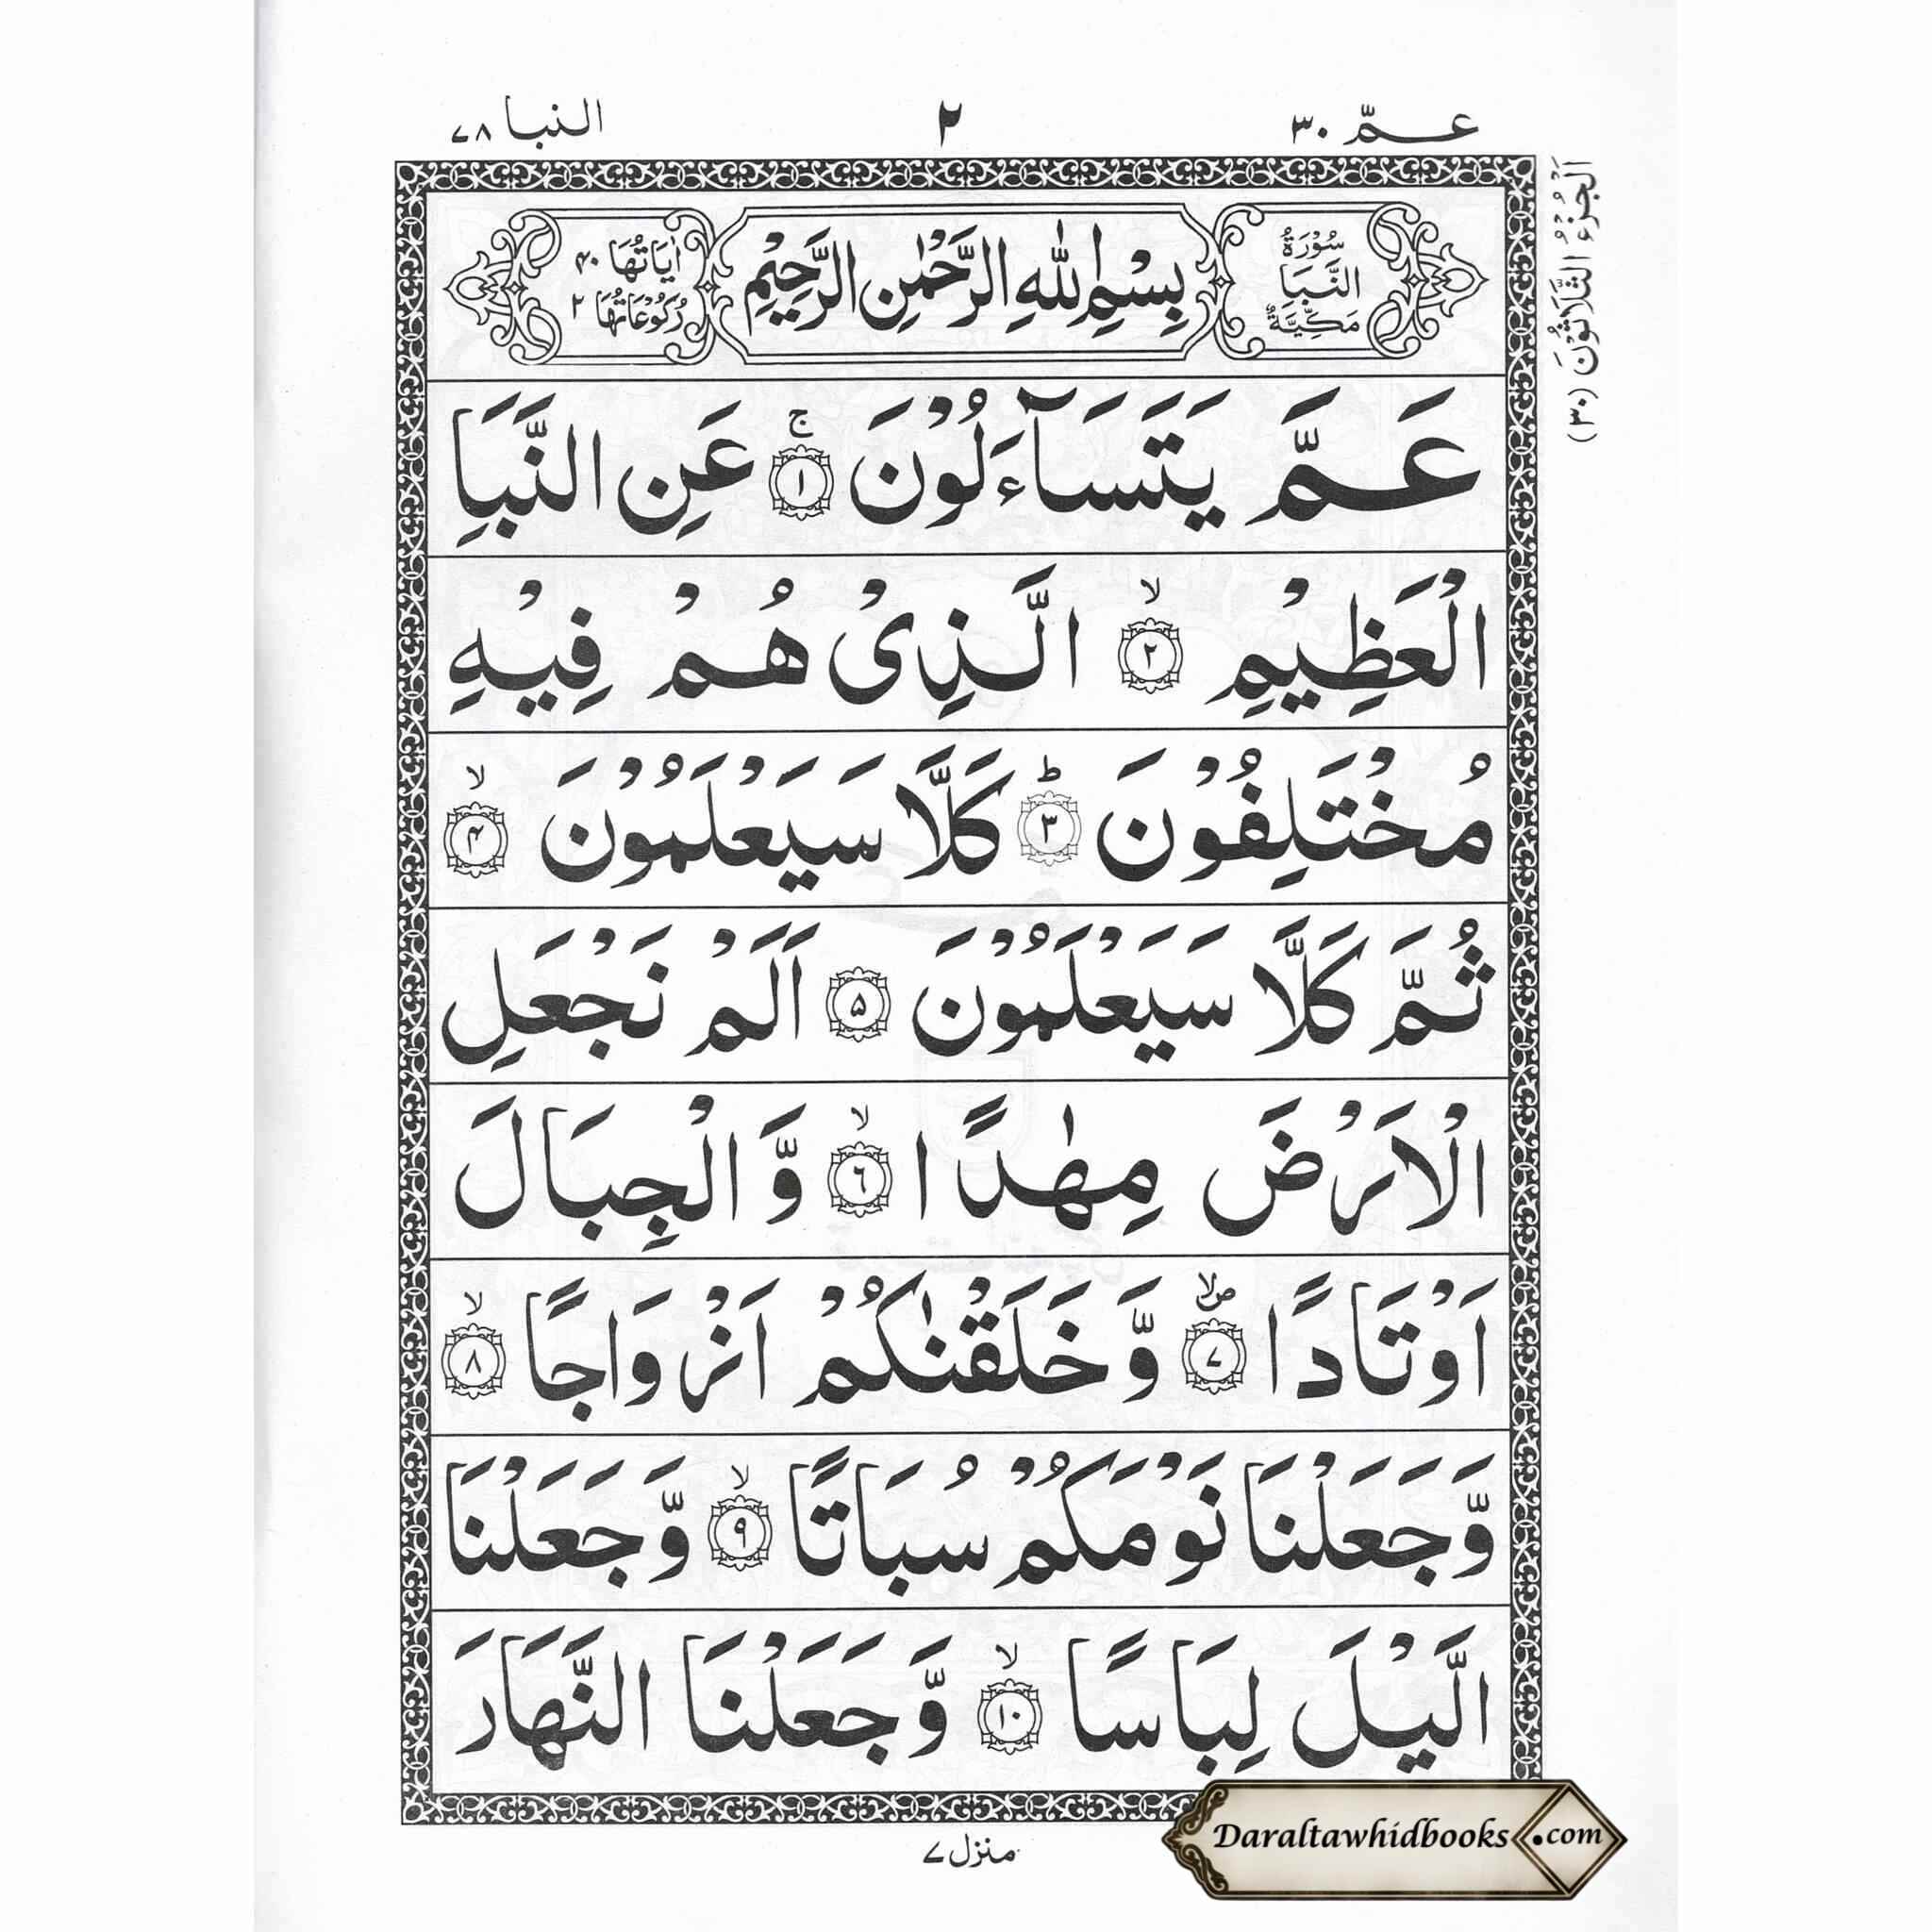 عمّ ۳۰
۲
النبا ۷۸
الجزء الثلاثون (۳۰)
سُوْرَةُ النَّبَاِ مَكِّيَّةٌ
بِسْمِ اللّٰهِ الرَّحْمٰنِ الرَّحِيْمِ
اٰيَاتُهَا ۴۰
رُكُوْعَاتُهَا ۲
عَمَّ يَتَسَآءَلُوْنَ ۚ ۱ عَنِ النَّبَاِ
الْعَظِيْمِ ۙ ۲ الَّذِیْ هُمْ فِيْهِ
مُخْتَلِفُوْنَ ؕ ۳ كَلَّا سَيَعْلَمُوْنَ ۙ ۴
ثُمَّ كَلَّا سَيَعْلَمُوْنَ ۵ اَلَمْ نَجْعَلِ
الْاَرْضَ مِهٰدًا ۙ ۶ وَّالْجِبَالَ
اَوْتَادًا ۪ۙ ۷ وَّخَلَقْنٰكُمْ اَزْوَاجًا ۙ ۸
وَّجَعَلْنَا نَوْمَكُمْ سُبَاتًا ۙ ۹ وَّجَعَلْنَا
الَّيْلَ لِبَاسًا ۙ ۱۰ وَّجَعَلْنَا النَّهَارَ
منزل ۷
Daraltawhidbooks.com